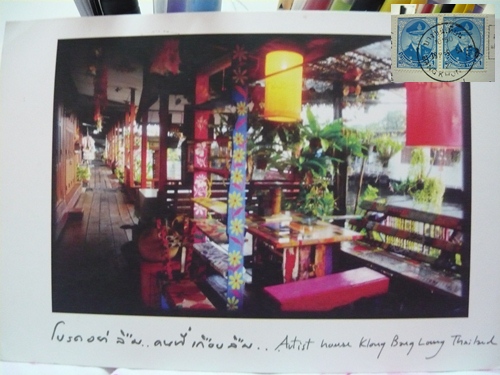 โปรดอย่าลืม.. คนที่เกือบลืม.. Artist house Klong Bang Luang Thailand